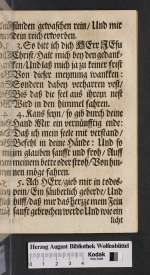 sünden gewaschen rein/ Und mir
dein reich erworben.
3. So bitt ich dich HErr JEsu
Christ/ Halt mich bey den gedanck-
ken/ Und laß mich ja zu keiner frist
Von dieser meynung wancken:
Sondern daben verharren vest/
Bis daß die seel aus ihrem nest
Wird in den himmel fahren.
4. Kans seyn/ so gib durch deine
Hand Mir ein vernünftig ende:
Daß ich mein seele mit verstand/
Befehl in deine Hände: Und so
im glauben sanfft und froh/ Auff
meinem bette oder stroh/ Von hin-
nen möge fahren.
5. HErr/
Ein säuberlich geberde/ Und
hilff/ daß mir das hertze mein Fein
sanfft gebrochen werde Und wie ein
licht
Herzog August Bibliothek Wolfenbüttel
Kodak